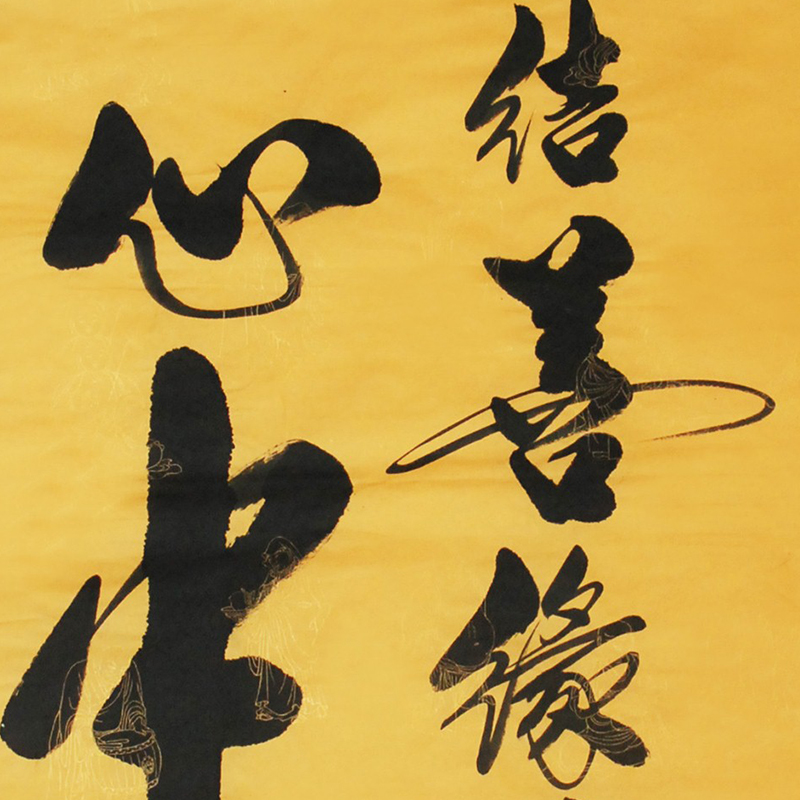 结善缘
心中